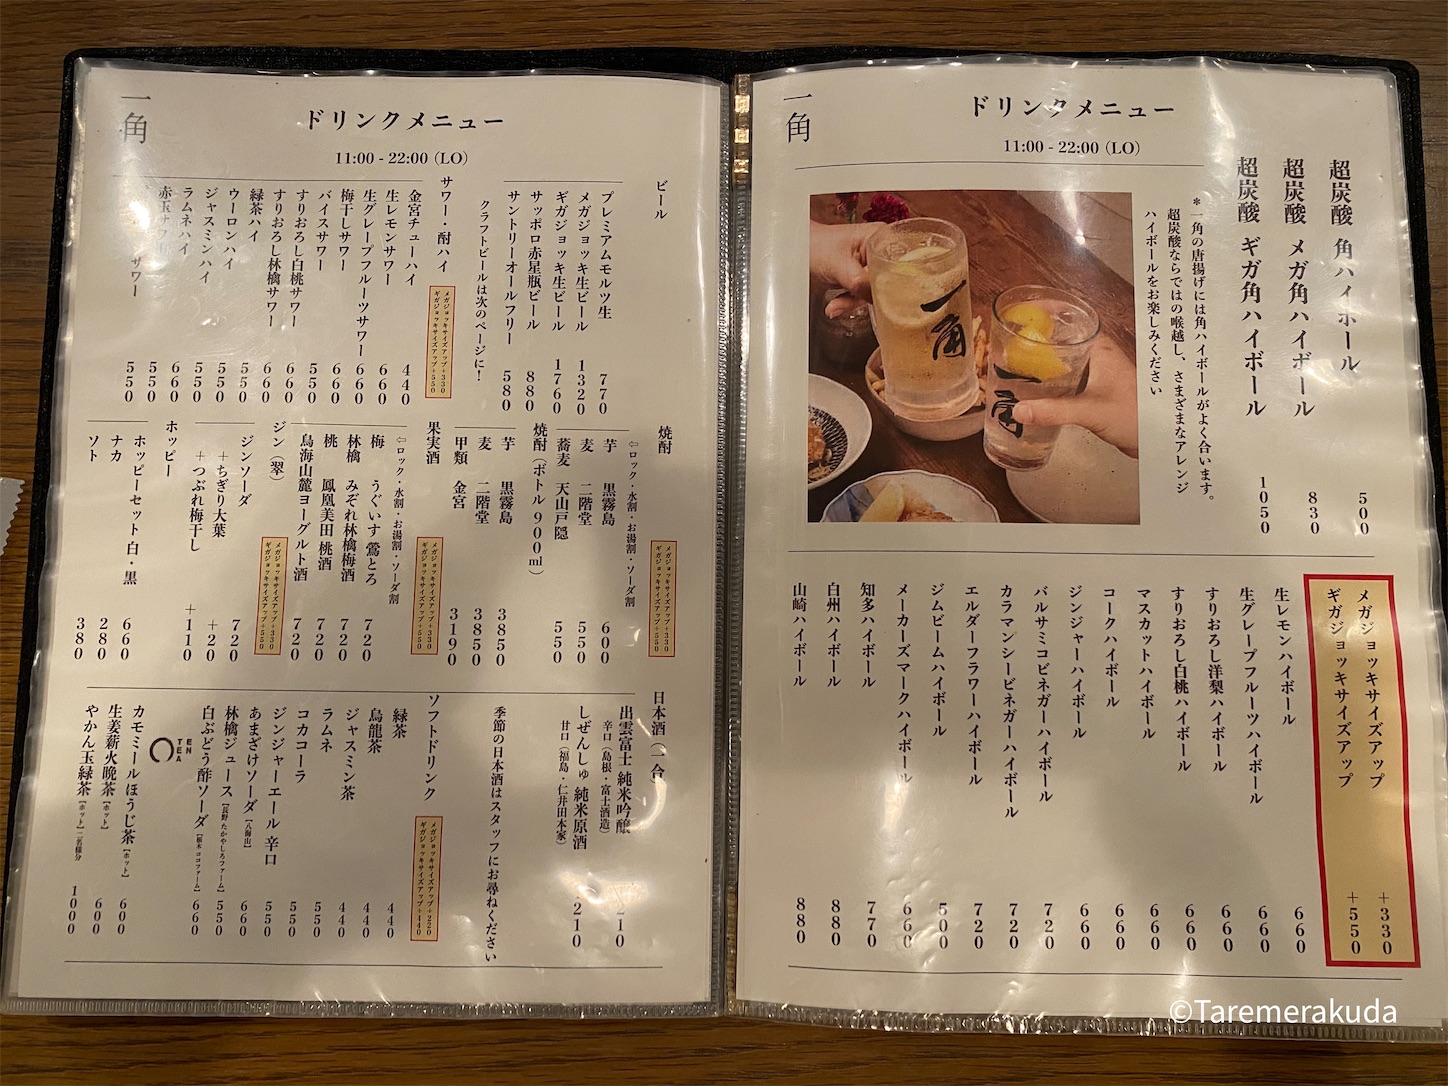 一角
ドリンクメニュー
11:00 - 22:00 (LO)
超炭酸 角ハイボール 500
超炭酸 メガ角ハイボール 830
超炭酸 ギガ角ハイボール 1050
＊一角の唐揚げには角ハイボールがよく合います。
超炭酸ならではの喉越し、さまざまなアレンジ
ハイボールをお楽しみください
一角
一角
メガジョッキサイズアップ +330
ギガジョッキサイズアップ +550
生レモンハイボール 660
生グレープフルーツハイボール 660
すりおろし洋梨ハイボール 660
すりおろし白桃ハイボール 660
マスカットハイボール 660
コークハイボール 660
ジンジャーハイボール 660
バルサミコビネガーハイボール 720
カラマンシービネガーハイボール 720
エルダーフラワーハイボール 720
ジムビームハイボール 500
メーカーズマークハイボール 660
知多ハイボール 770
白州ハイボール 880
山崎ハイボール 880
一角
ドリンクメニュー
11:00 - 22:00 (LO)
ビール
プレミアムモルツ生 770
メガジョッキ生ビール 1320
ギガジョッキ生ビール 1760
サッポロ赤星瓶ビール 880
サントリーオールフリー 580
クラフトビールは次のページに！
サワー・酎ハイ
メガジョッキサイズアップ+330
ギガジョッキサイズアップ+550
金宮チューハイ 440
生レモンサワー 660
生グレープフルーツサワー 660
梅干しサワー 660
バイスサワー 550
すりおろし白桃サワー 660
すりおろし林檎サワー 660
緑茶ハイ 550
ウーロンハイ 550
ジャスミンハイ 550
ラムネハイ 660
赤玉 550
サワー 550
焼酎
メガジョッキサイズアップ+330
ギガジョッキサイズアップ+550
⇦ロック・水割・お湯割・ソーダ割
芋 黒霧島 600
麦 二階堂 550
蕎麦 天山戸隠 550
焼酎（ボトル 900ml）
芋 黒霧島 3850
麦 二階堂 3850
甲類 金宮 3190
果実酒
メガジョッキサイズアップ+330
ギガジョッキサイズアップ+550
⇦ロック・水割・お湯割・ソーダ割
梅 うぐいす 鶯とろ 720
林檎 みぞれ林檎梅酒 720
桃 鳳凰美田 桃酒 720
鳥海山麓ヨーグルト酒 720
ジン（翠）
メガジョッキサイズアップ+330
ギガジョッキサイズアップ+550
ジンソーダ 720
+ちぎり大葉 +20
+つぶれ梅干し +110
ホッピー
ホッピーセット 白・黒 660
ナカ 280
ソト 380
日本酒（一合）
出雲富士 純米吟醸 210
辛口（島根・富士酒造）
しぜんしゅ 純米原酒 1210
甘口（福島・仁井田本家）
季節の日本酒はスタッフにお尋ねください
ソフトドリンク
メガジョッキサイズアップ+220
ギガジョッキサイズアップ+440
緑茶 440
烏龍茶 440
ジャスミン茶 440
ラムネ 550
コカコーラ 550
ジンジャーエール 辛口 550
あまざけソーダ［八海山］ 660
林檎ジュース［長野 たかやしろファーム］ 550
白ぶどう酢ソーダ［栃木 ココファーム］ 660
EN TEA
カモミールほうじ茶［ホット］ 600
生姜薪火晩茶［ホット］ 600
やかん玉緑茶［ホット］二名様分 1000
©Taremerakuda